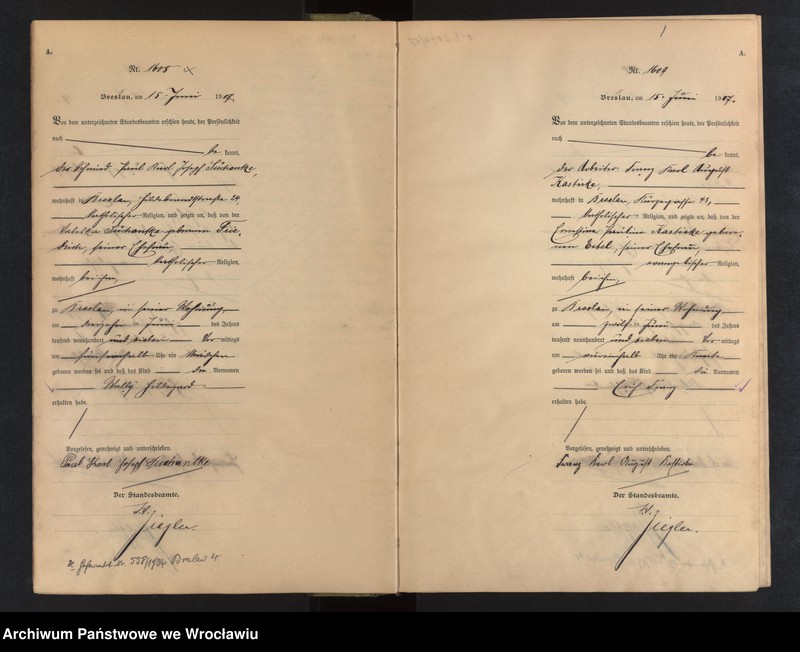 A.
Nr. 1608
Breslau, am 15. Juni 1907.
Vor dem unterzeichneten Standesbeamten erschien heute, der Persönlichkeit
nach
be kannt,
der Schmied Paul Karl Joseph Suchantke,
wohnhaft in Breslau, Hildebrandtstraße 24
katholischer Religion, und zeigte an, daß von der
Suchantke geborenen
seiner Ehefrau,
katholischer Religion,
wohnhaft bei ihm,
zu Breslau, in seiner Wohnung,
am dreizehn ten Juni des Jahres
tausend neunhundert und sieben Vor mittags
um fünfeinhalb Uhr ein Mädchen
geboren worden sei und daß das Kind die Vornamen
Wally Hildegard
erhalten habe.
Vorgelesen, genehmigt und unterschrieben.
Paul Karl Joseph Suchantke
Der Standesbeamte.
Ziegler.
Nr. 558/1934 Breslau
1
A.
Nr. 1609
Breslau, am 15. Juni 1907.
Vor dem unterzeichneten Standesbeamten erschien heute, der Persönlichkeit
nach
be kannt,
der Arbeiter Franz Karl August
wohnhaft in Breslau,
katholischer Religion, und zeigte an, daß von der
Ernestine Pauline gebore-
nen seiner Ehefrau,
evangelischer Religion,
wohnhaft bei ihm,
zu Breslau, in seiner Wohnung,
am zwölf ten Juni des Jahres
tausend neunhundert und sieben Vor mittags
um Uhr ein Knabe
geboren worden sei und daß das Kind die Vornamen
Erich Franz
erhalten habe.
Vorgelesen, genehmigt und unterschrieben.
Franz Karl August
Der Standesbeamte.
Ziegler.
Archiwum Państwowe we Wrocławiu